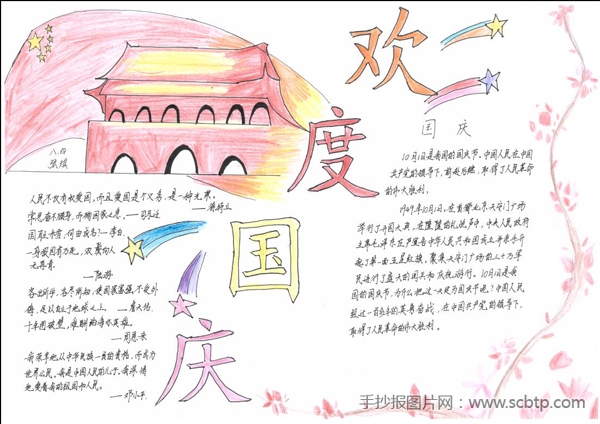 欢
度
国
庆
八.四
国 庆
10月1日是我国的国庆节。中国人民在中
国共产党的领导下,前赴后继,取得了人民革命
的伟大胜利。
1949年10月1日,在首都北京天安门广场
举行了开国大典,在隆隆的礼炮声中,中央人民政府
主席毛泽东庄严宣告中华人民共和国成立并亲手升
起了第一面五星红旗。聚集天安门广场的三十万军
民进行了盛大的阅兵和庆祝游行。10月1日是我
国的国庆节,为什么把这一天定为国庆节呢?中国人民
经过一百多年的英勇奋战,在中国共产党的领导下,
取得了人民革命的伟大胜利。
人民不仅有权爱国,而且爱国是个义务,是一种光荣。
常思奋不顾身,而殉国家之急。——司马迁
一寸报国有万死,双鬓向人
无再青
——陆游
各出所学,各尽所知,使国家富强不受外
侮,足以自立于地球之上。——詹天佑
——周恩来
我荣幸地以中华民族一员的资格,而成为
世界公民。我是中国人民的儿子。我深情
地爱着我的祖国和人民。
——邓小平
手抄报图片网:www.scbtp.com